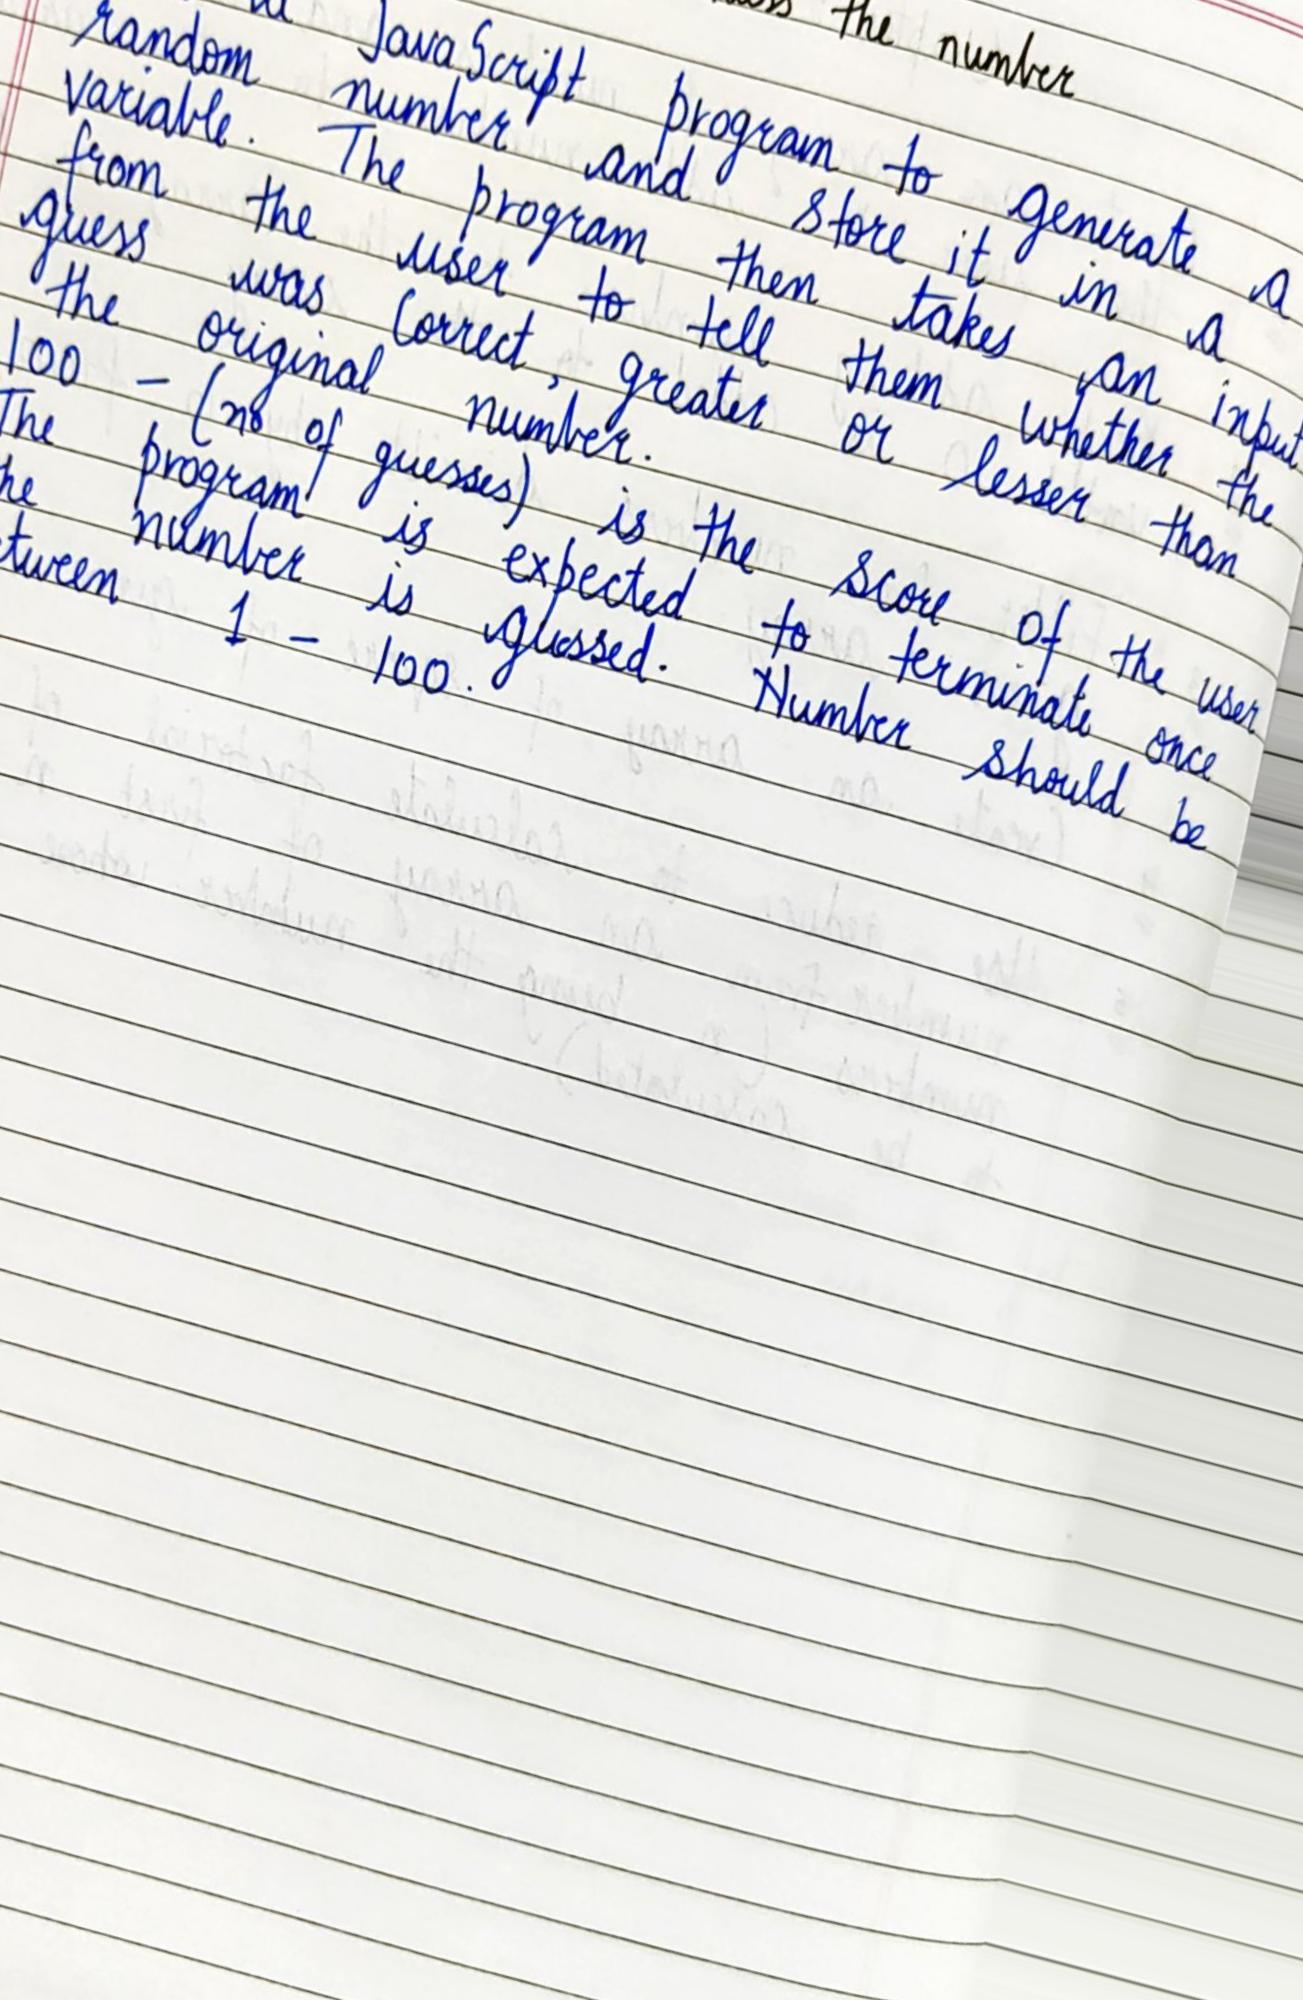 the number
JavaScript program to generate a
random number and store it in a
variable. The program then takes an input
from the user to tell them whether the
guess was correct, greater or lesser than
the original number.
100 - (no of guesses) is the score of the user
The program is expected to terminate once
the number is guessed. Number should be
between 1 - 100.